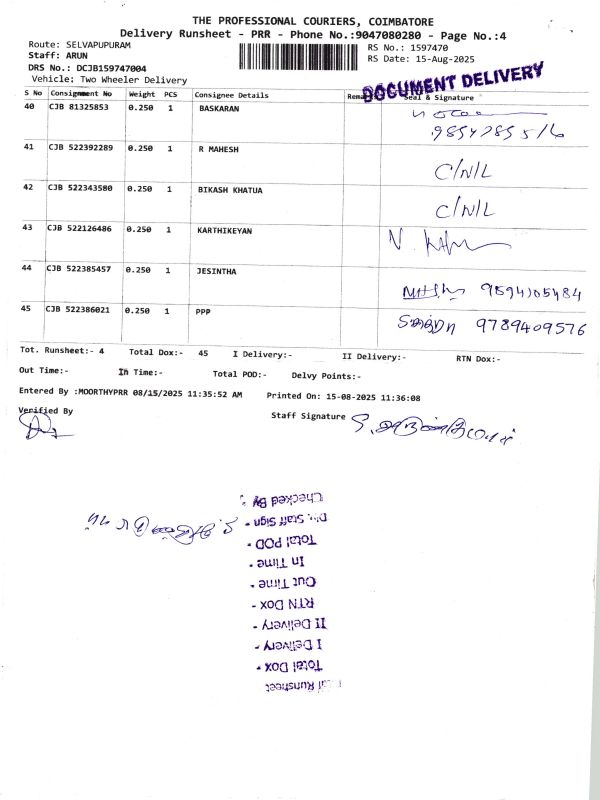 THE PROFESSIONAL COURIERS, COIMBATORE
Delivery Runsheet - PRR - Phone No.:9047080280 - Page No.:4
Route: SELVAPUPURAM
RS No.: 1597470
Staff: ARUN
RS Date: 15-Aug-2025
DRS No.: DCJB159747004
Vehicle: Two Wheeler Delivery
DOCUMENT DELIVERY
S No Consignment No Weight PCS Consignee Details Remarks Seal & Signature
40 CJB 81325853 0.250 1 BASKARAN
41 CJB 522392289 0.250 1 R MAHESH C/N/L
42 CJB 522343580 0.250 1 BIKASH KHATUA C/N/L
43 CJB 522126486 0.250 1 KARTHIKEYAN
44 CJB 522385457 0.250 1 JESINTHA 9894105484
45 CJB 522386021 0.250 1 PPP 9789409576
Tot. Runsheet:- 4 Total Dox:- 45 I Delivery:- II Delivery:- RTN Dox:-
Out Time:- In Time:- Total POD:- Delvy Points:-
Entered By :MOORTHYPRR 08/15/2025 11:35:52 AM Printed On: 15-08-2025 11:36:08
Verified By
Staff Signature
Total Runsheet
Total Dox -
I Delivery -
II Delivery -
RTN Dox -
Out Time -
In Time -
Total POD -
Div. Staff Sign -
Checked By :